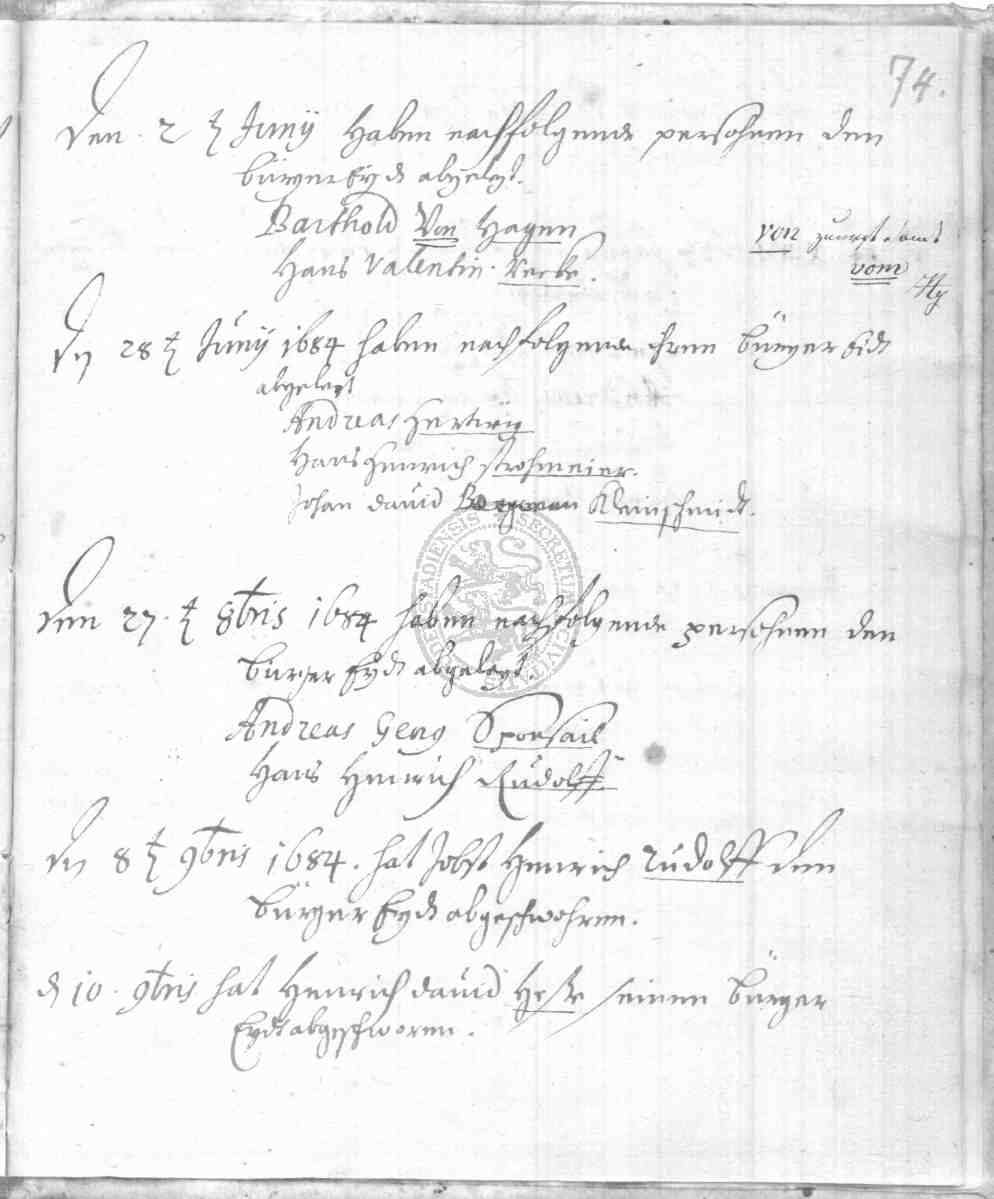 74.
Den 2 t Junij Haben nachfolgende persohnen den
bürger Eydt abgelegt.
Barthold Von Hagen
von
Hans Valentin
vom
Den 28 t Junij 1684 haben nachfolgende ihren bürger Eidt
abgelegt
Andreas Hertwig
Hans Henrich Strohmeier.
Johan david Kleinschmidt.
Den 27. t 8bris 1684 haben nachfolgende persohnen den
bürger Eydt abgelegt.
Andreas Georg Sponsail
Hans Henrich Rudolff
Den 8 t 9bris 1684. hat Jobst Henrich Rudolff den
bürger Eydt abgeschwohren.
d 10. 9bris hat Henrich david Hesse seinen bürger
Eydt abgeschworen.
SECRETUM CIVITATIS